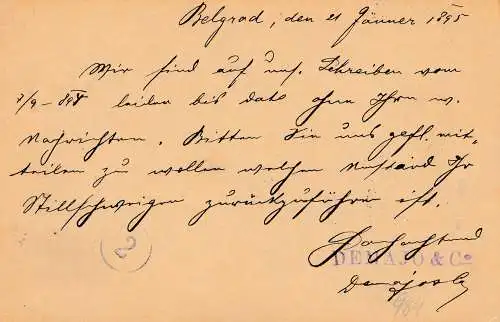 Belgrad, den 21 Jänner 1895
Wir sind auf uns. Schreiben vom
7/9 - 894 leider bis dato ohne Ihre w.
Nachrichten. Bitten Sie uns gefl. mit=
teilen zu wollen welchem Umstand Ihr
Stillschweigen zurückzuführen ist.
Hochachtend
DEMAJO & Co
Demajo & Co
2
984